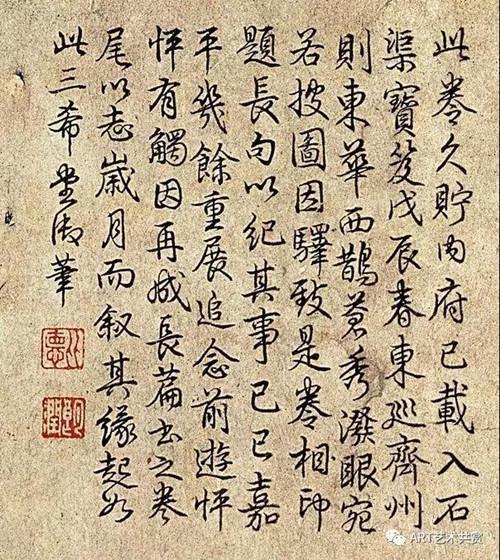 此卷久貯內府已載入石
渠寶笈戊辰春東巡齊州
則東華西鵲蒼秀潑眼宛
若披圖因驛致是卷相印
題長句以紀其事己巳嘉
平幾餘重展追念前遊怦
怦有觸因再成長篇書之卷
尾以志歲月而叙其緣起如
此三希堂御筆
比悳
朗潤
ART艺术共赏